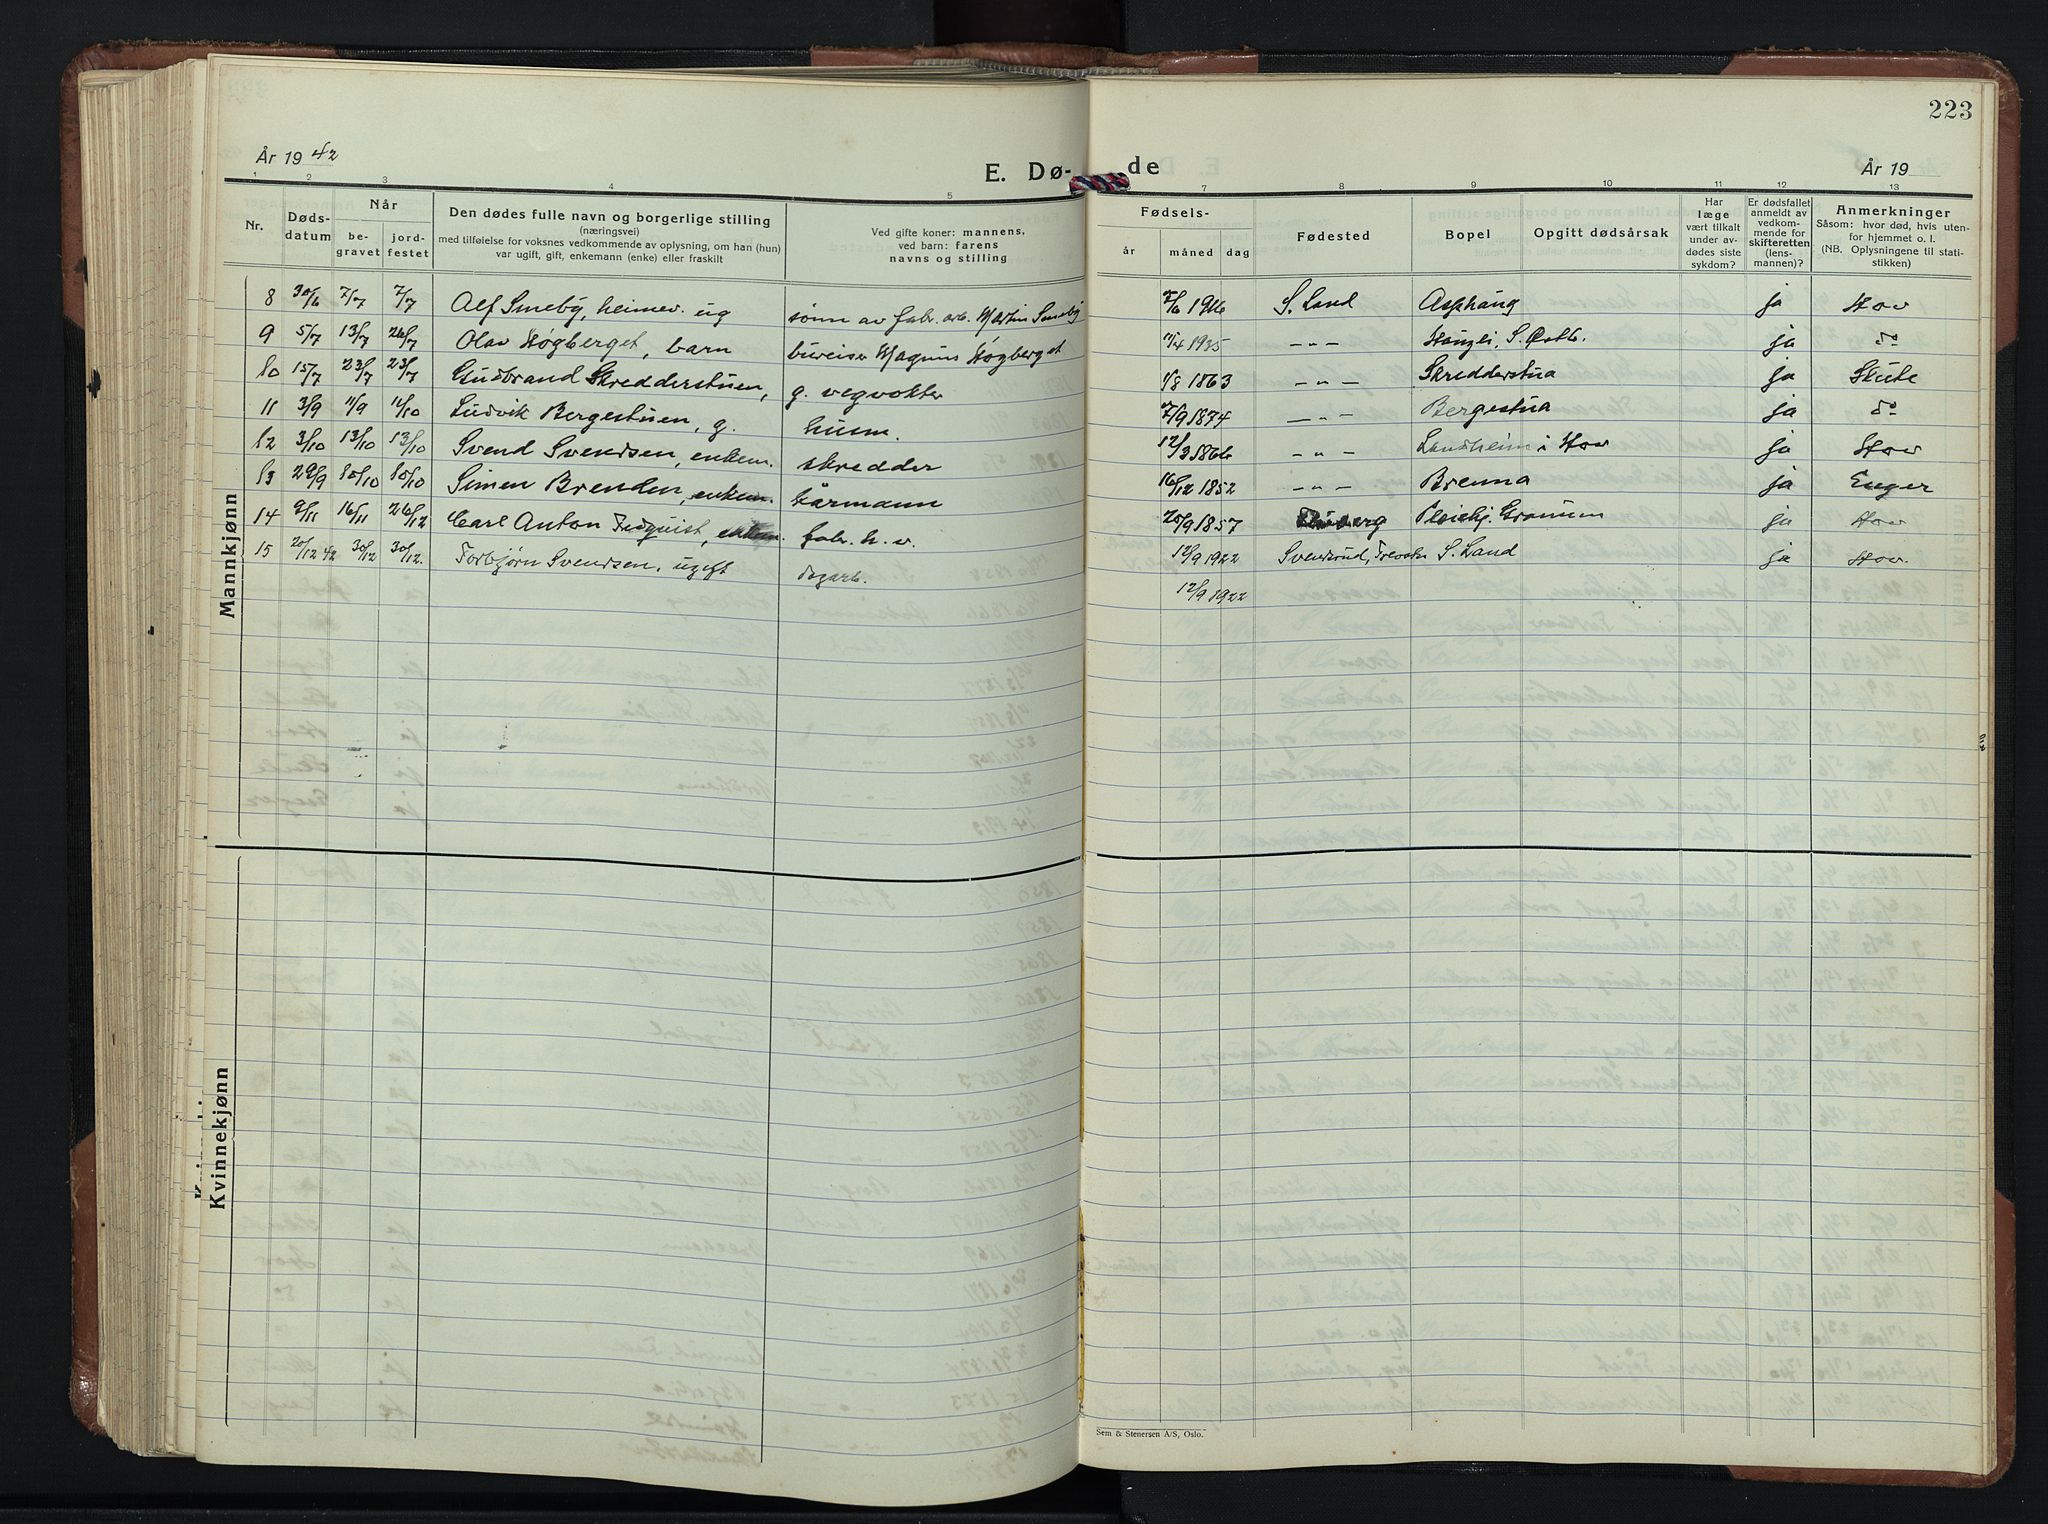 223
År 19 42
E. Dø- de
År 19
1 2 3 4 5 7 8 9 10 11 12 13
Nr.
Døds-
datum
Når
be-
gravet
jord-
festet
Den dødes fulle navn og borgerlige stilling
(næringsvei)
med tilføielse for voksnes vedkommende av oplysning, om han (hun)
var ugift, gift, enkemann (enke) eller fraskilt
Ved gifte koner: mannens,
ved barn: farens
navns og stilling
Fødsels-
år måned dag
Fødested
Bopel
Opgitt dødsårsak
Har
læge
vært tilkalt
under av-
dødes siste
sykdom?
Er dødsfallet
anmeldt av
vedkom-
mende for
skifteretten
(lens-
mannen)?
Anmerkninger
Såsom: hvor død, hvis uten-
for hjemmet o. l.
(NB. Oplysningene til stati-
stikken)
8 30/6 7/7 7/7 Alf Smeby, heimev. ug sønn av fabr. arb. Martin Smeby 7/6 1916 S. Land Asphaug ja Hov
9 5/7 13/7 26/7 Olav Høgberget, barn bureiser Magnus Høgberget 11/4 1935 — " — S. Østb. ja do
10 15/7 23/7 23/7 Gudbrand Skredderstuen, g. vegvokter 1/8 1863 — " — Skredderstua ja Skute
11 3/9 11/9 11/10 Ludvik Bergestuen, g. husm. 7/9 1874 — " — Bergestua ja do
12 3/10 13/10 13/10 Svend Svendsen, enkem. skredder 12/3 1866 — " — Landheim i Hov ja Hov
13 29/9 10/10 10/10 Simen Brenden, enkem. kårmann 16/12 1852 — " — Brenna ja Enger
14 9/11 16/11 26/12 Carl Anton enkem. fabr. h. v. 20/9 1857 Pleiehj. Granum ja Hov
15 20/12 42 30/12 30/12. Torbjørn Svendsen, ugift dagarb. 12/9 1922 Svensrud, S. Land ja Hov.
12/9 1922
Mannkjønn
Kvinnekjønn
Sem & Stenersen A/S, Oslo.